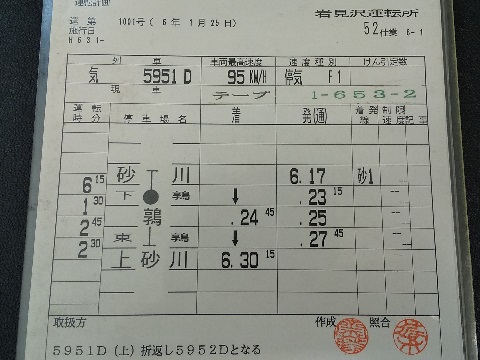 運転計画
達第 1001号 ( 6年 1月25日)
岩見沢運転所
施行日
H631-
52仕業 6-1
列車 車両最高速度 速度種別 けん引定数
気 5951D 95KM/H 停気 F1
現車 テープ 1-653-2
運転時分 停車場名 着 発(通) 着発線 制限速度 記事
砂川 6.17 砂1
6 15 下鶉 ↓ .23 15
1 30 鶉 .24 45 .25
2 45 東鶉 ↓ .27 45
2 30 上砂川 6.30 15
取扱方 作成 照合
5951D(上)折返し5952Dとなる